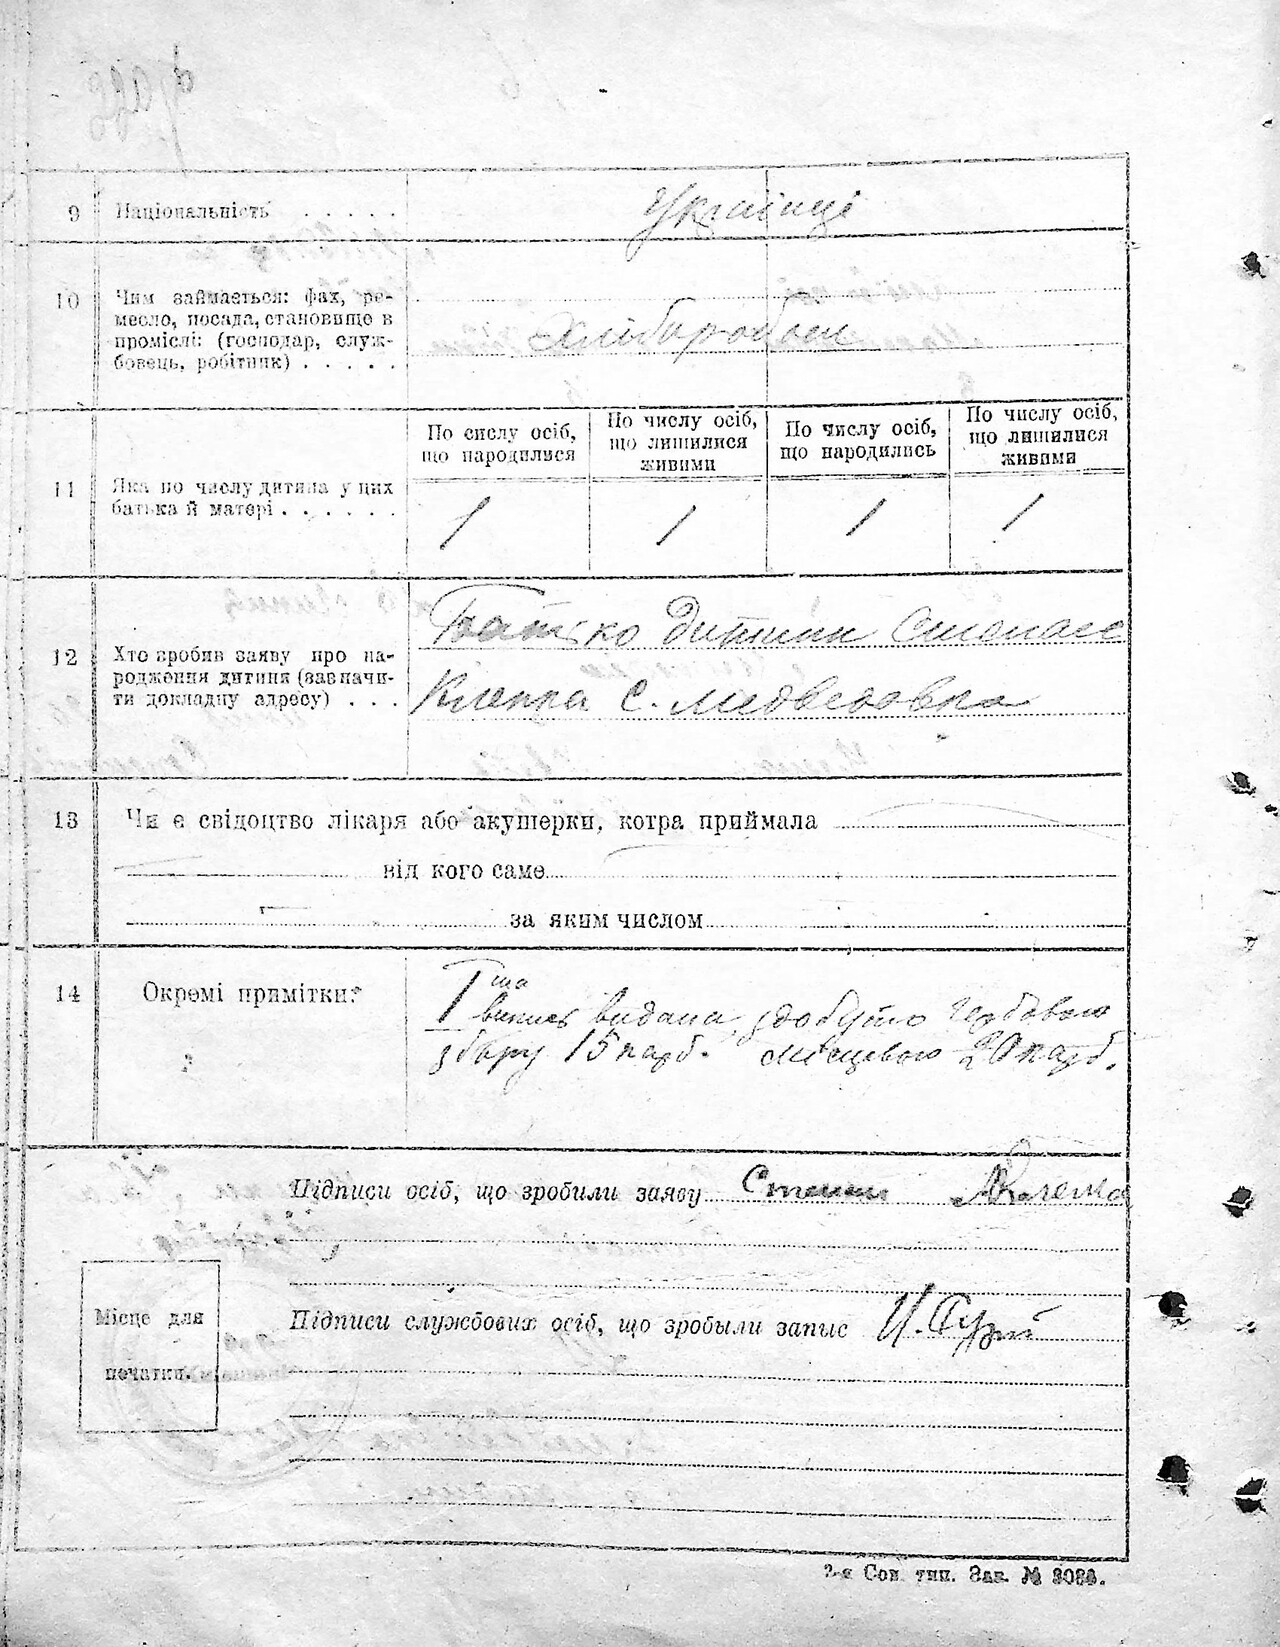 9 Національність . . . . . Українці
10 Чим займається: фах, ре-
месло, посада, становище в
проміслі: (господар, служ-
бовець, робітник) . . . . . Хлібороби
11 Яка по числу дитина у цих
батька й матері . . . . . .
По сислу осіб, що народилися
По числу осіб, що лишилися живими
По числу осіб, що народились
По числу осіб, що лишилися живими
1 1 1 1
12 Хто зробив заяву про на-
родження дитини (зазначи-
ти докладну адресу) . . .
Батько дитини
с. Медведовка
13 Чи є свідоцтво лікаря або акушерки, котра приймала
від кого саме
за яким числом
14 Окремі примітки:
1ша
випись видана, здобуто гербового
збору 15 карб. місцевого 20 карб.
Підписи осіб, що зробили заяву Степан
Підписи службових осіб, що зробыли запис
Місце для
печатки.
2-я Сов. тип. Зак. №